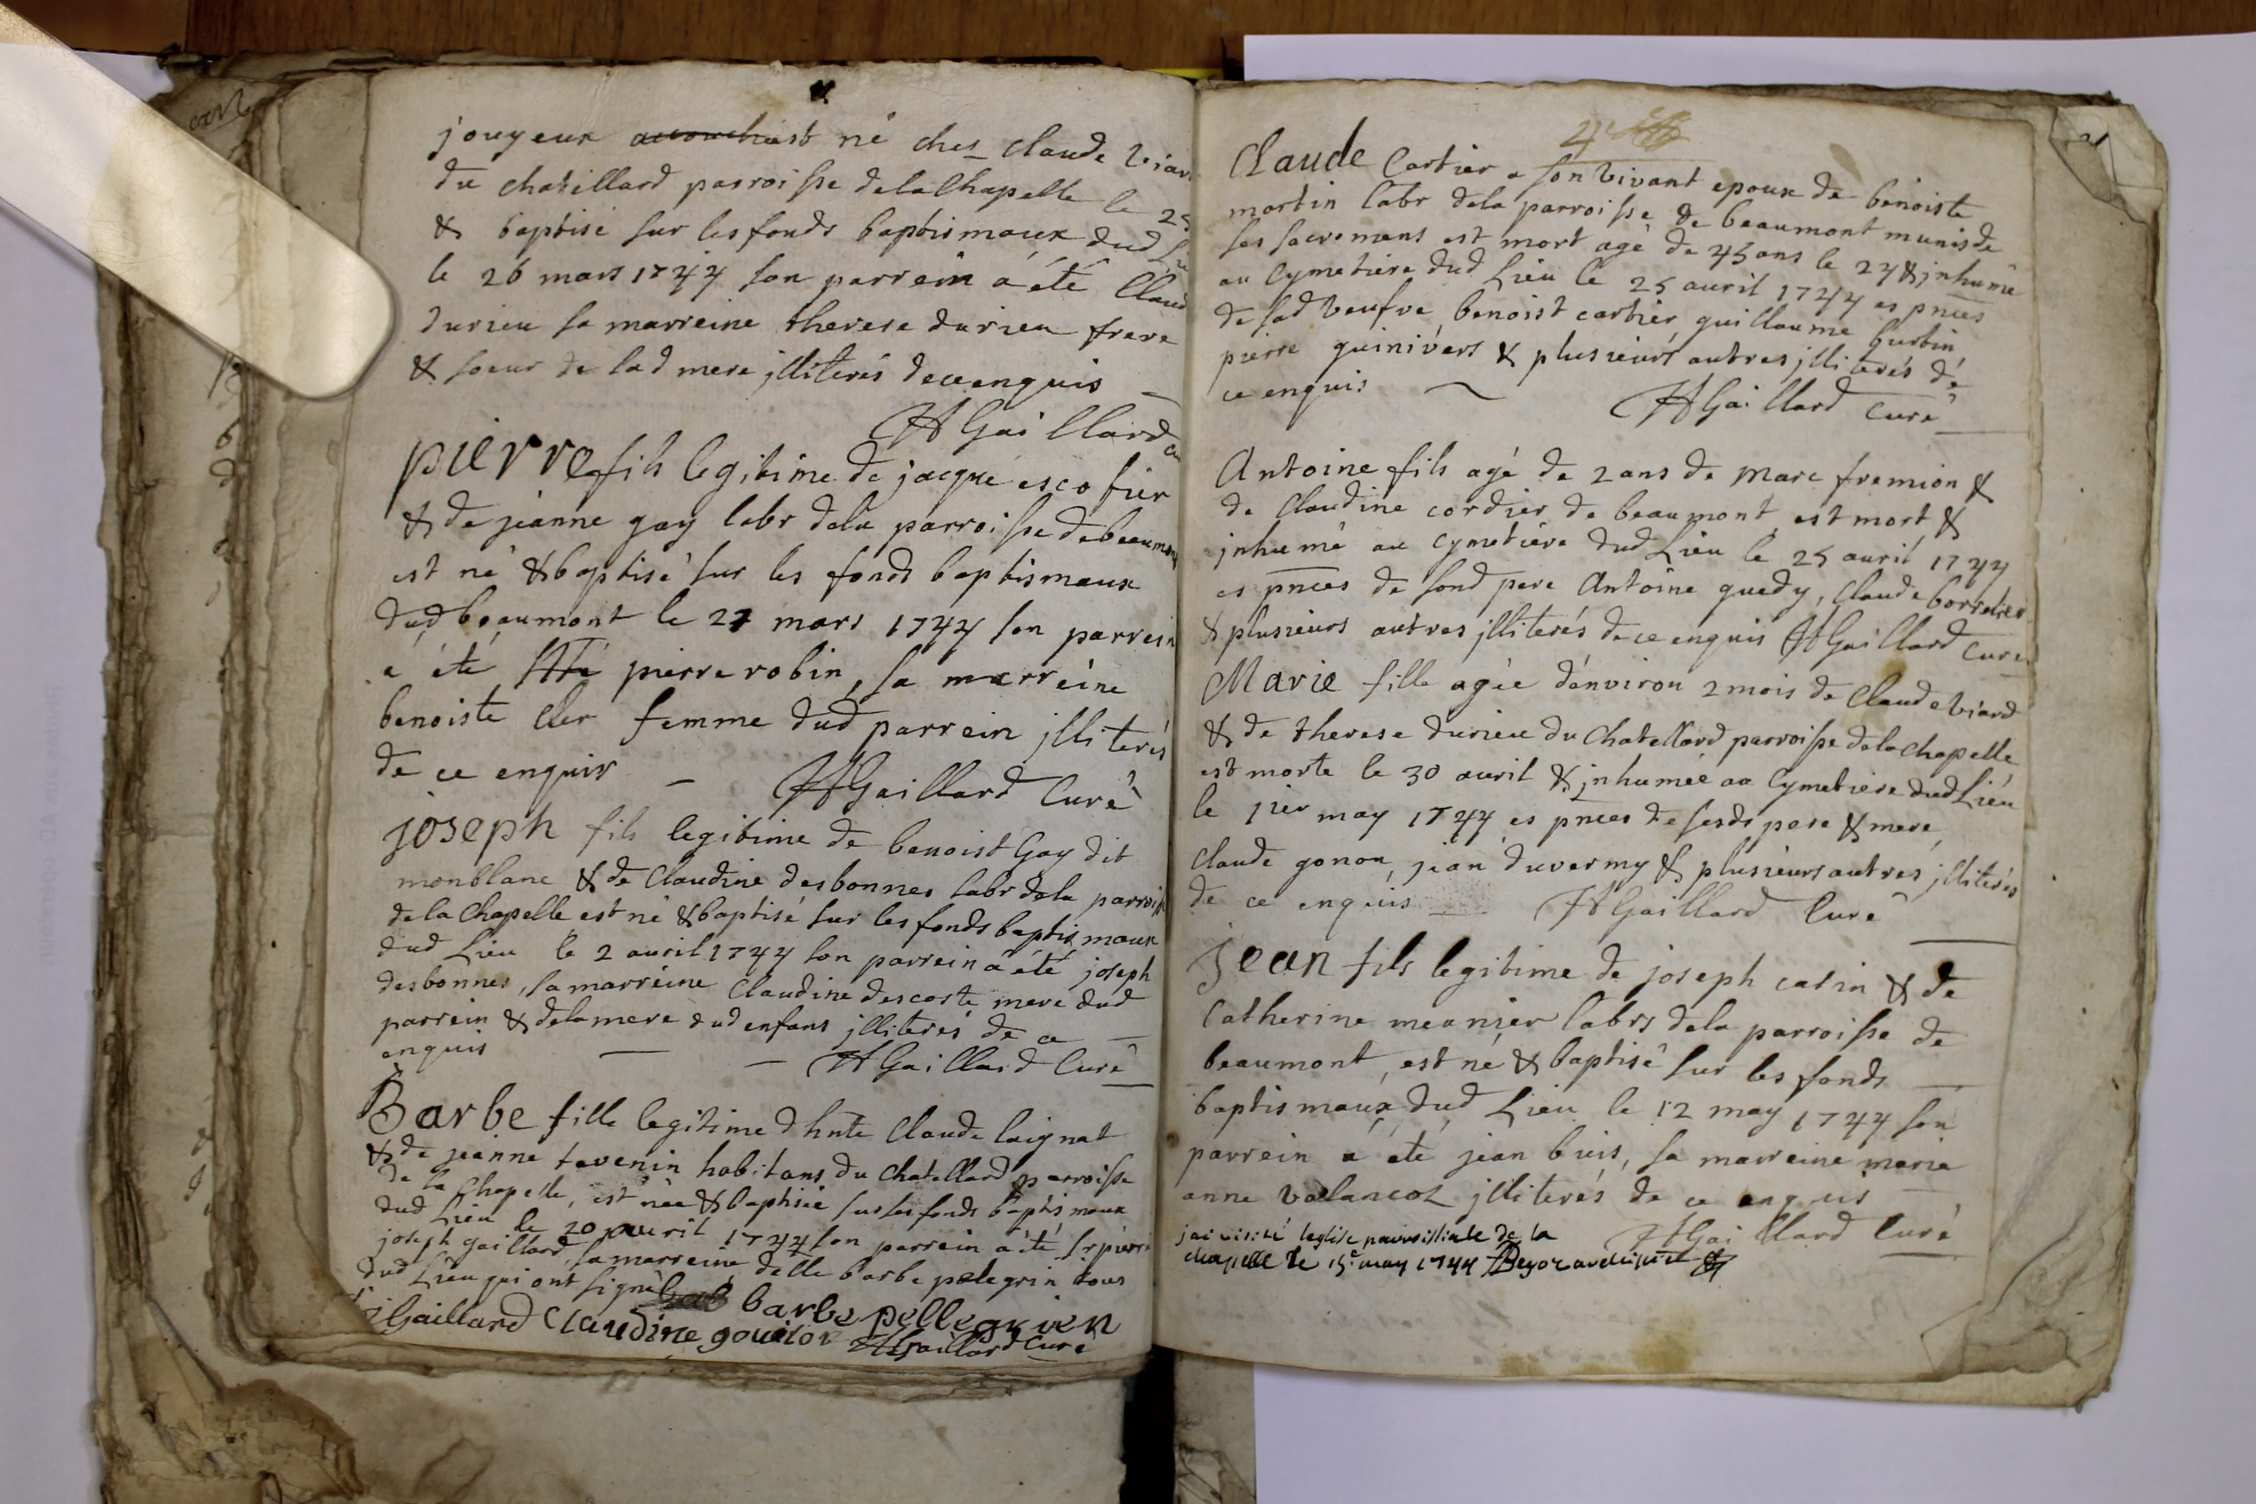 jouyeux accouchast né ches claude
du chatillard parroisse dela Chapelle le 25
& baptisé sur les fonds baptismaux dud
le 26 mars 1744 son parrein a été Claud
durieu sa marreine therese durieu frere
& soeur de lad mere jlliterés de ce enquis
Gaillard
pierre fils legitime de jacque escofier
& de jeanne gay labr dela parroisse de beaumont
est né & baptisé sur les fonds baptismaux
dud beaumont le 27 mars 1744 son parrein
a été pierre robin, sa marreine
benoiste cler femme dud parrein jlliterés
de ce enquis Gaillard Curé
joseph fils legitime de benoist Gay dit
monblanc & de Claudine desbonnes labr dela parroisse
de la Chapelle est né & baptisé sur les fonds baptismaux
dud Lieu le 2 auril 1744 son parrein a été joseph
desbonnes, sa marreine Claudine descoste mere dud
parrein & dela mere dud enfans jlliterés de ce
enquis Gaillard Curé
Barbe fille legitime d hnte Claude laignat
& de jeanne tavenin habitans du Chatellard parroisse
de la Chapelle, est née & baptisée sur les fonds baptismaux
dud Lieu le 20 auril 1744 son parrein a été Sr pierre
joseph gaillard, sa marreine delle barbe pelegrin tous
dud Lieu qui ont signé barbe pellegrien
Gaillard Claudine Gaillard Curé
Claude Cartier a son vivant epoux de benoiste
martin labr dela parroisse de beaumont munis de
ses sacremens est mort agé de 45 ans le 24 & jnhumé
au Cymetiere dud Lieu le 25 auril 1744 es pnces
de sad veufve, benoist cartier, guillaume burtin,
pierre guinivers & plusieurs autres jlliterés de
ce enquis Gaillard Curé
Antoine fils agé de 2 ans de Marc fremion &
de Claudine cordier de beaumont, est mort &
jnhumé au cymetiere dud Lieu le 25 auril 1744
es pnces de sond pere Antoine guedy, Claude
& plusieurs autres jlliterés de ce enquis Gaillard Curé
Marie fille agée d'énviron 2 mois de Claude viard
& de therese durieu du Chatellard parroisse dela Chapelle
est morte le 30 auril & jnhumée au Cymetiere dud Lieu
le 1ier may 1744 es pnces de sesds pere & mere,
Claude gonon, jean duvermy & plusieurs autres jlliterés
de ce enquis Gaillard Curé
Jean fils legitime de joseph catin & de
Catherine meanier labrs dela parroisse de
beaumont, est né & baptisé sur les fonds
baptismaux dud Lieu le 12 may 1744 son
parrein a été jean buis, sa marreine marie
anne valancot jlliterés de ce enquis
Gaillard Curé
jai visité leglise parroissialle de la
chapelle le 15e may 1744